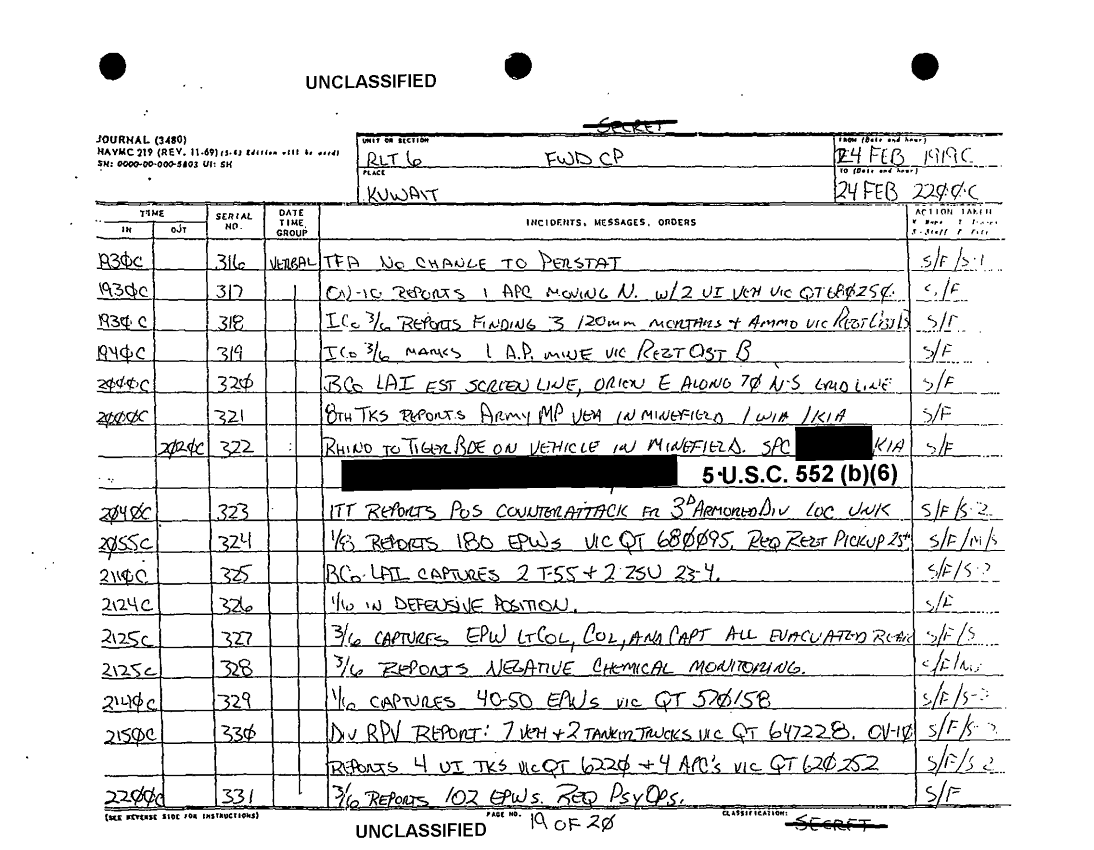 UNCLASSIFIED
SECRET
JOURNAL (3480)
NAVMC 219 (REV. 11-69) (5-63 Edition will be used)
SN: 0000-00-000-5803 UI: SH
UNIT OR SECTION
RLT 6 FWD CP
FROM (Date and hour)
24 FEB 1919C
PLACE
KUWAIT
TO (Date and hour)
24 FEB 22ØØC
TIME
IN OUT
SERIAL NO.
DATE TIME GROUP
INCIDENTS, MESSAGES, ORDERS
ACTION TAKEN
193ØC 316 VERBAL TFA NO CHANGE TO PERSTAT S/F/S-1
193ØC 317 OV-10 REPORTS 1 APC MOVING N. W/2 UI VEH VIC QT68Ø25Ø. S/F
193Ø C 318 ICo 3/6 REPORTS FINDING 3 120mm MORTARS + AMMO VIC S/F
194ØC 319 ICo 3/6 MARKS 1 A.P. MINE VIC B S/F
2ØØØC 32Ø BCo LAI EST SCREEN LINE, ORIEN E ALONG 7Ø N-S GRID LINE S/F
2ØØØC 321 8TH TKS REPORTS ARMY MP VEH IN MINEFIELD 1 WIA 1 KIA S/F
2Ø2ØC 322 RHINO TO TIGER BDE ON VEHICLE IN MINEFIELD. SPC KIA S/F
5 U.S.C. 552 (b)(6)
2Ø4ØC 323 ITT REPORTS POS COUNTERATTACK FR 3D ARMORED DIV LOC UNK S/F/S-2
2Ø55C 324 1/8 REPORTS 180 EPWs VIC QT 68ØØ95. REQ REGT PICKUP 25th S/F/M/S
211ØC 325 BCo LAI CAPTURES 2 T-55 + 2 ZSU 23-4. S/F/S-2
2124C 326 1/6 IN DEFENSIVE POSITION. S/F
2125C 327 3/6 CAPTURES EPW LTCOL, COL, AND CAPT ALL EVACUATED S/F/S
2125C 328 3/6 REPORTS NEGATIVE CHEMICAL MONITORING.
214ØC 329 1/6 CAPTURES 40-50 EPWs VIC QT 57Ø158 S/F/S-2
215ØC 33Ø DIV RPV REPORT: 7 VEH + 2 TANKER TRUCKS VIC QT 647228. OV-1Ø S/F/S-2
REPORTS 4 UI TKS VIC QT 622Ø + 4 APC's VIC QT 62Ø252 S/F/S-2
22ØØC 331 3/6 REPORTS 102 EPWs. REQ PSYOPS. S/F
(SEE REVERSE SIDE FOR INSTRUCTIONS)
PAGE NO. 19 OF 2Ø
CLASSIFICATION: SECRET
UNCLASSIFIED